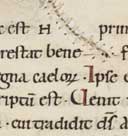 est H prim
restat bene f
gna caeloꝝ Ipse e
riptū est Uenit
cui tradidit dn̄s